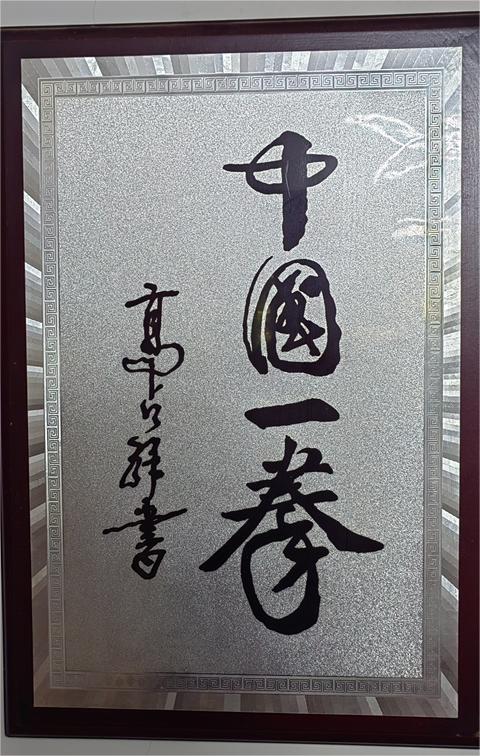 中國一拳
高占祥書